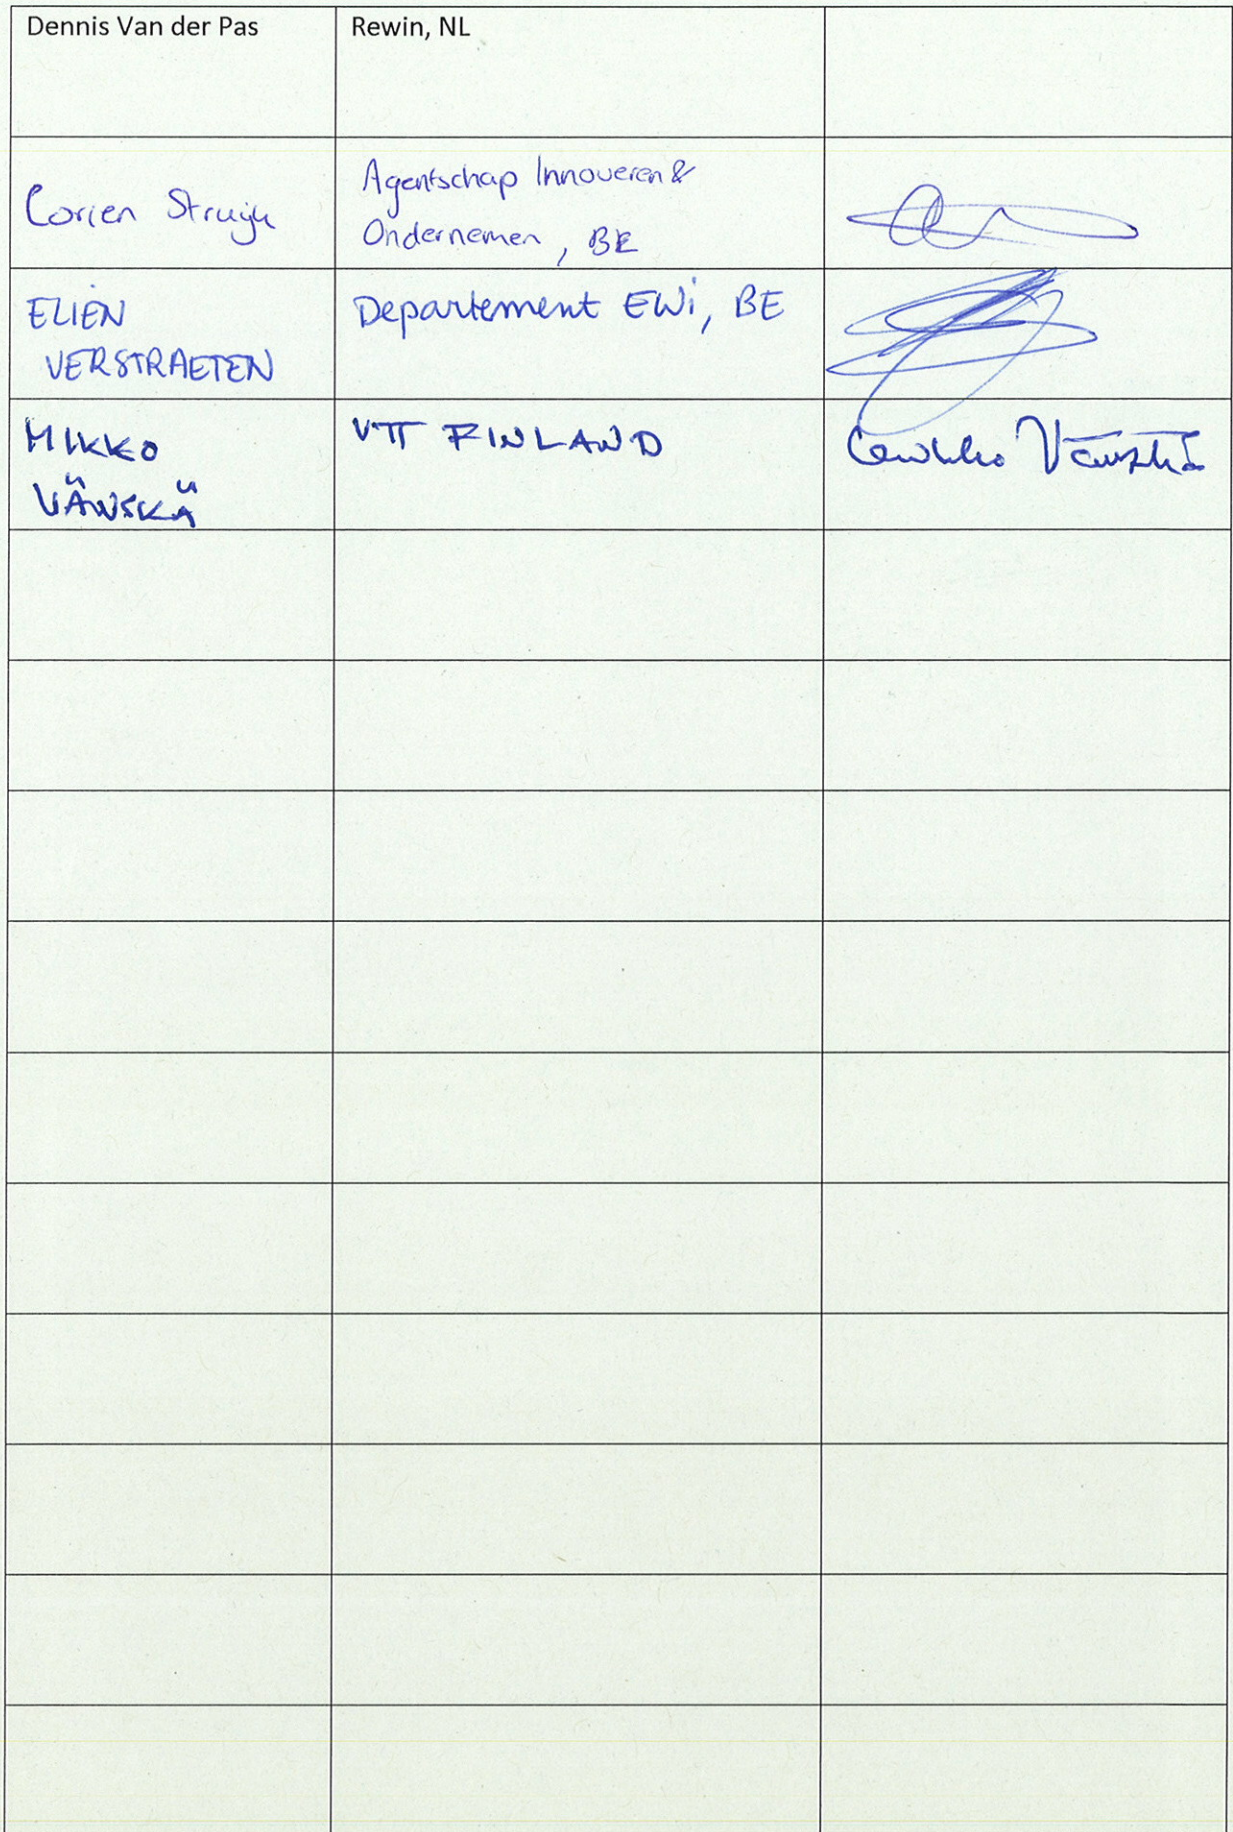 Dennis Van der Pas
Rewin, NL
Corien Struijk
Agentschap Innoveren &
Ondernemen, BE
ELIEN
VERSTRAETEN
Departement EWi, BE
MIKKO
VÄNSKÄ
VTT FINLAND
Vänskä